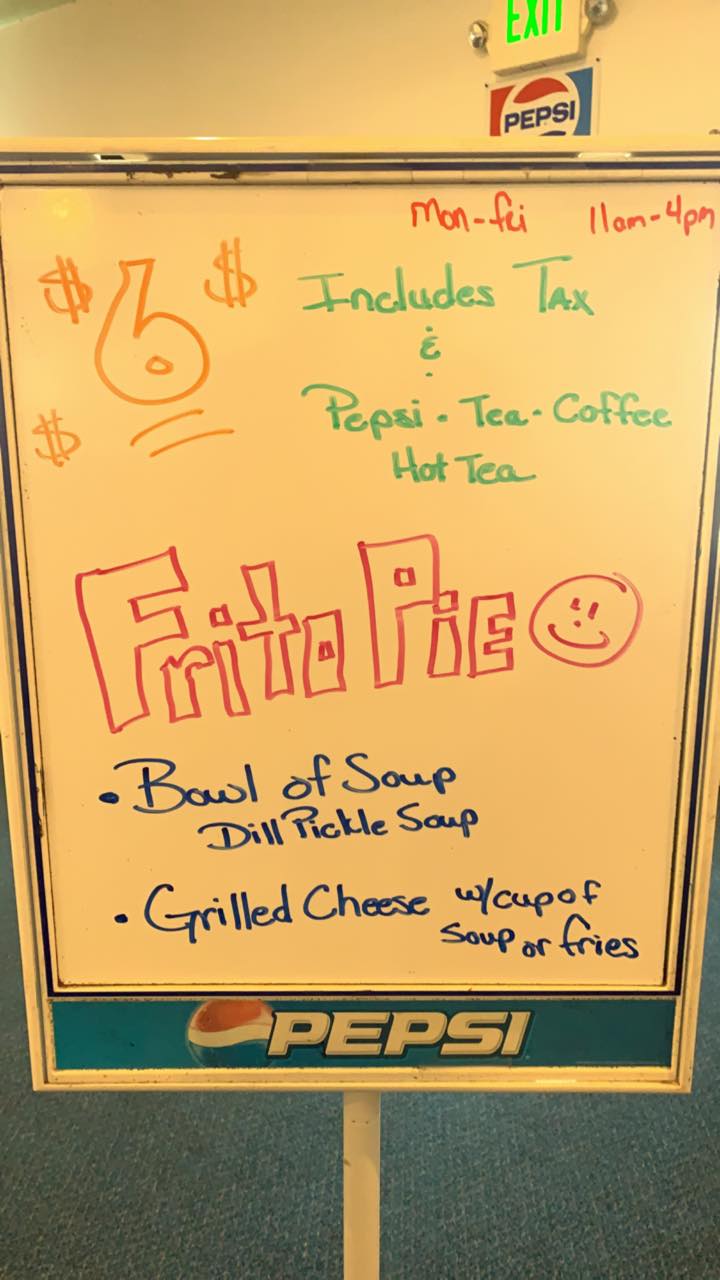 EXIT
PEPSI
Mon-fri 11am-4pm
$6 $
$
Includes Tax
&
Pepsi - Tea - Coffee
Hot Tea
Frito PiE
• Bowl of Soup
Dill Pickle Soup
• Grilled Cheese w/cup of
soup or fries
PEPSI